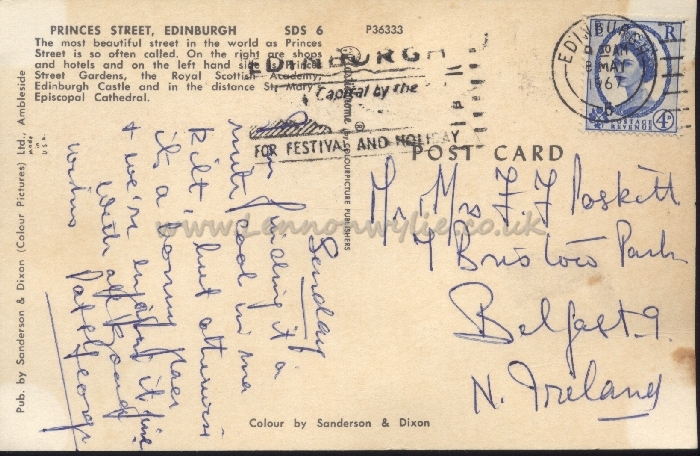 PRINCES STREET, EDINBURGH SDS 6 P36333
The most beautiful street in the world as Princes
Street is so often called. On the right are shops
and hotels and on the left hand side is Princes
Street Gardens, the Royal Scottish Academy,
Edinburgh Castle and in the distance St. Mary's
Episcopal Cathedral.
EDINBURGH
Capital by the
FOR FESTIVAL AND HOLIDAY
EDINBURGH
MAY
196
POSTAGE
REVENUE
4D
POST CARD
Mr. Mrs F. J. Poskett
7 Bristow Park
Belfast 9.
N. Ireland
Sunday
finding it a
cool in ma
kilt, but otherwise
it's a bonny place
& we're enjoying it fine
With all good
wishes Pat & George
Pub. by Sanderson & Dixon (Colour Pictures) Ltd., Ambleside
made in
U.S.A.
COLOURPICTURE PUBLISHERS
Colour by Sanderson & Dixon
www.Lennonwylie.co.uk